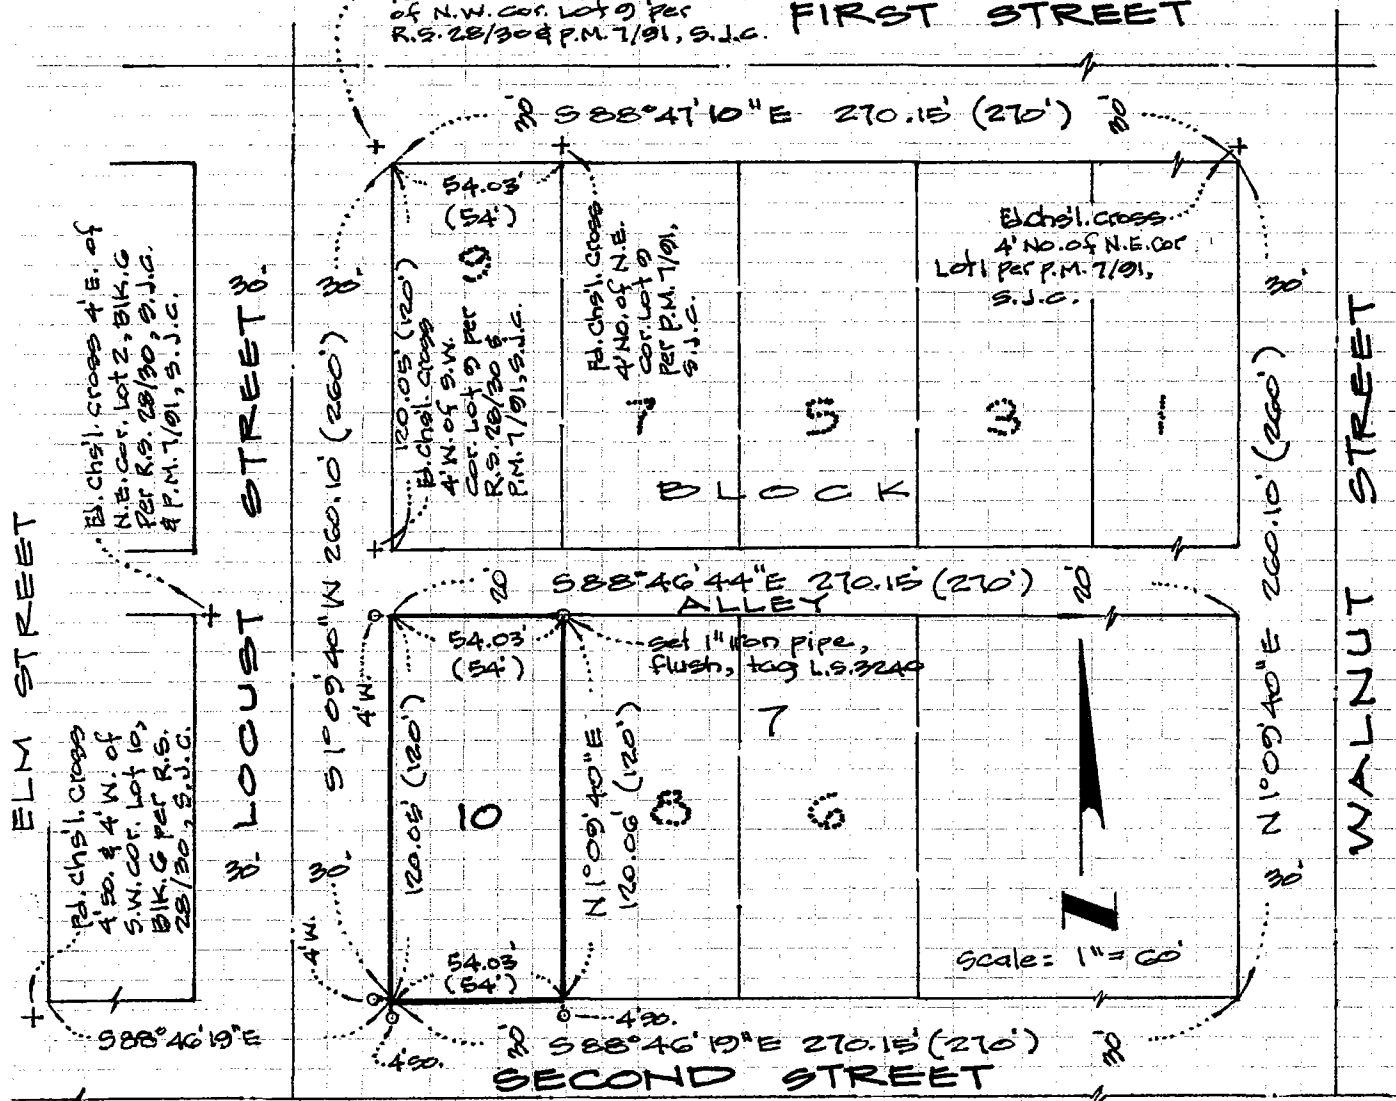 of N.W. Cor. Lot 9 per
R.S. 28/30 & P.M. 7/91, S.J.C.
FIRST STREET
30' S 88°47'10"E 270.15' (270') 30'
54.03'
(54')
9
120.05' (120')
Fd. Chs'l. Cross
4' W. of S.W.
Cor. Lot 9 per
R.S. 28/30 &
P.M. 7/91, S.J.C.
Fd. Chs'l. Cross
4' No. of N.E.
Cor. Lot 9
per P.M. 7/91,
S.J.C.
Fd. Chs'l. Cross
4' No. of N.E. Cor
Lot 1 per P.M. 7/91,
S.J.C.
7 5 3 1
BLOCK
Fd. Chs'l. Cross 4' E. of
N.E. Cor. Lot 2, Blk. 6
per R.S. 28/30, S.J.C.
& P.M. 7/91, S.J.C.
ELM STREET
LOCUST STREET
30' 30'
S 1°09'40"W 260.10' (260')
30' 30'
N 1°09'40"E 260.10' (260')
30'
30'
WALNUT STREET
20' S 88°46'44"E 270.15' (270') 20'
ALLEY
54.03'
(54')
set 1" iron pipe,
flush, tag L.S. 3240
4' W.
120.05' (120')
10
N 1°09'40"E
120.06' (120')
7
8 6
N
Scale: 1" = 60'
Fd. Chs'l. Cross
4' So. & 4' W. of
S.W. Cor. Lot 10,
Blk. 6 per R.S.
28/30, S.J.C.
4' W.
54.03'
(54')
S 88°46'19"E
4' So.
4' So.
30' S 88°46'19"E 270.15' (270') 30'
SECOND STREET